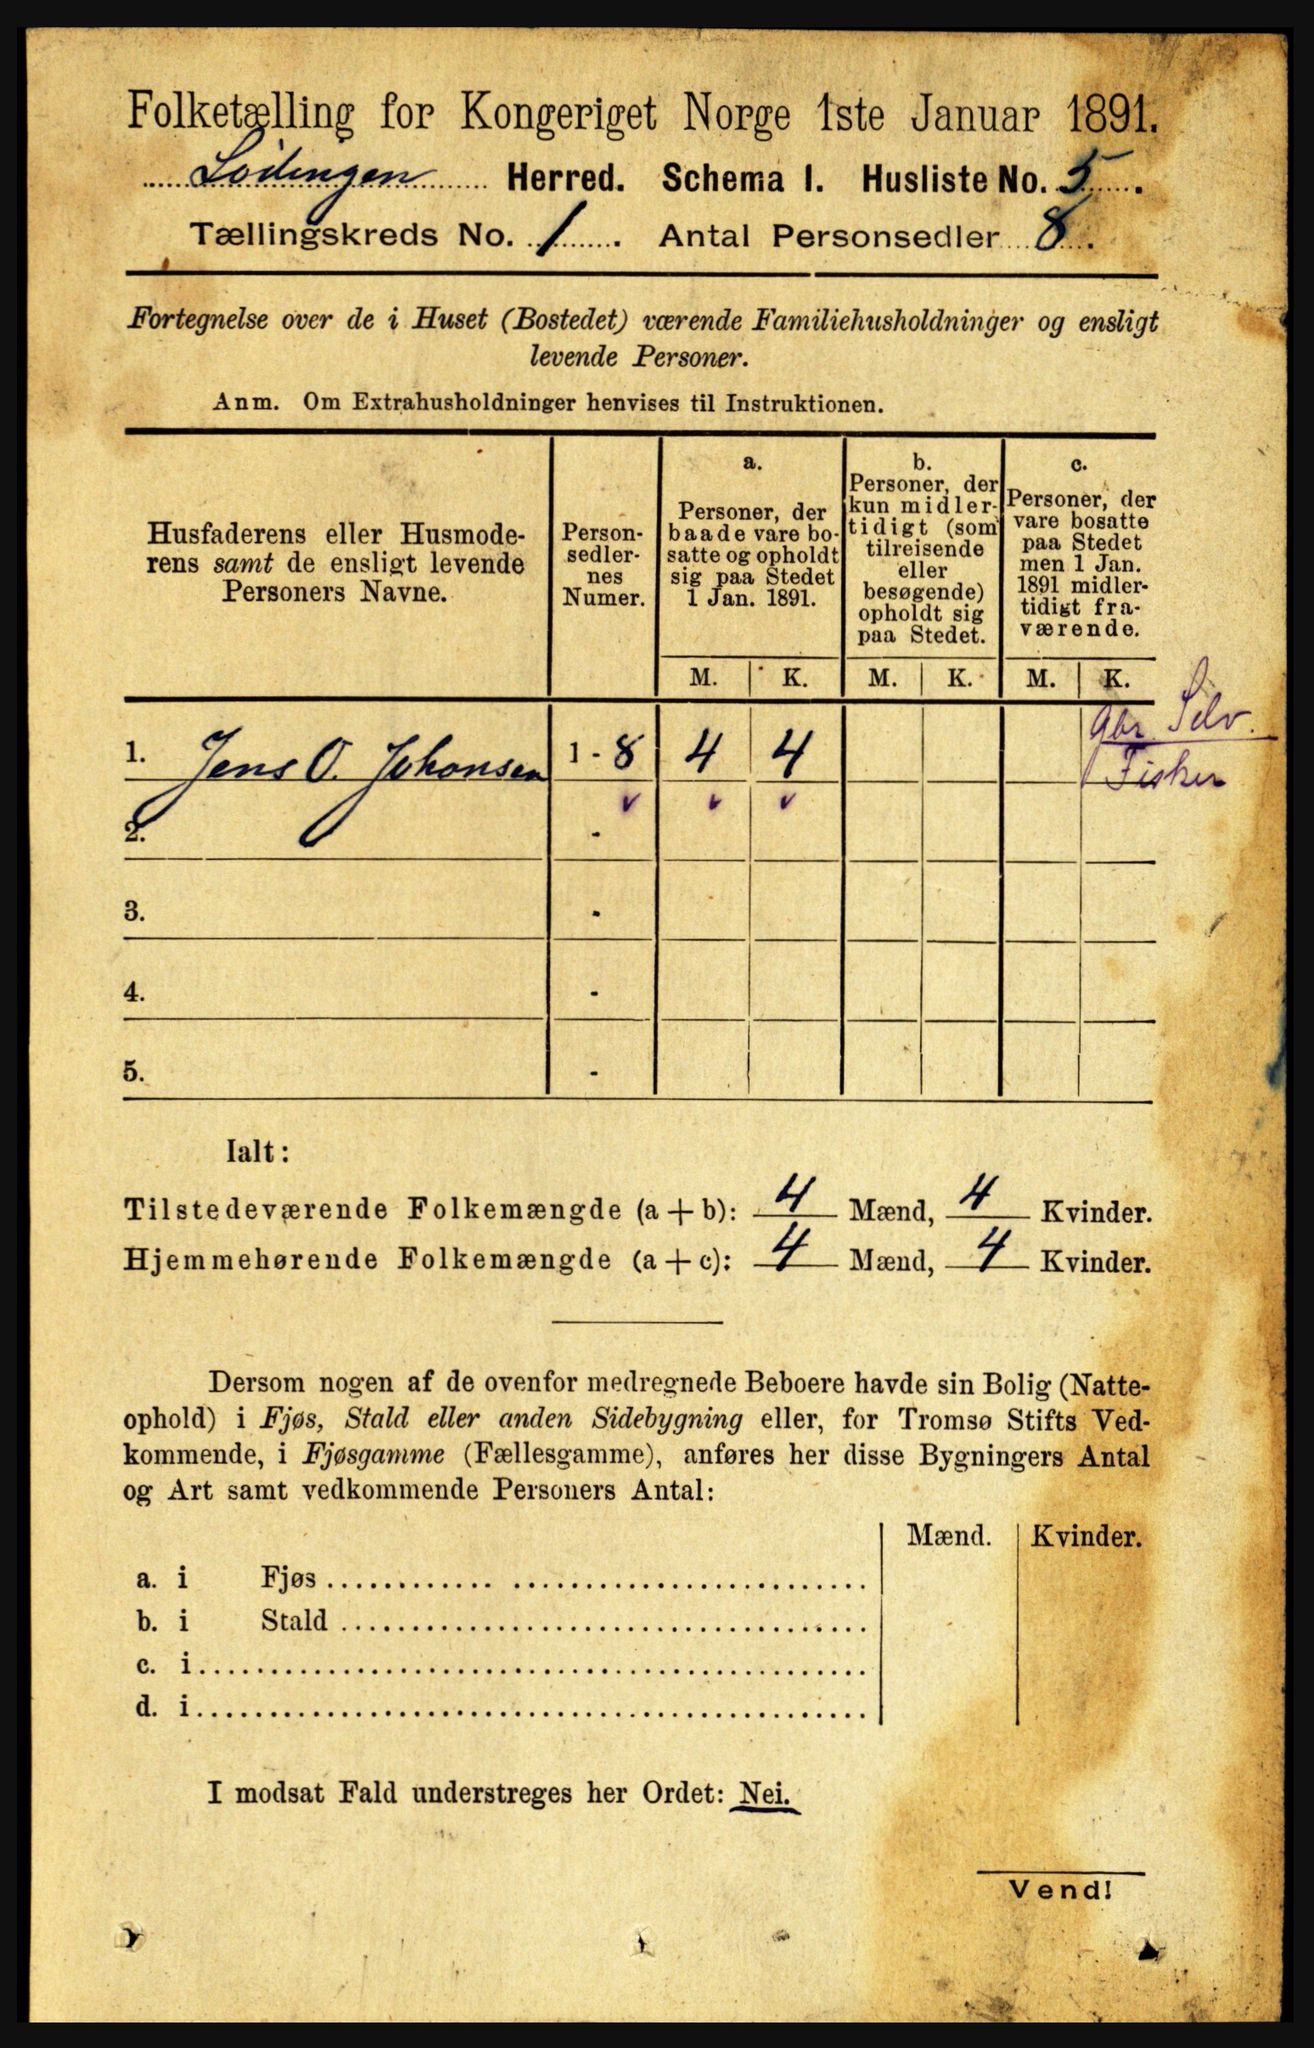 Folketælling for Kongeriget Norge 1ste Januar 1891.
Lödingen Herred. Schema I. Husliste No. 5.
Tællingskreds No. 1. Antal Personsedler 8.
Fortegnelse over de i Huset (Bostedet) værende Familiehusholdninger og ensligt
levende Personer.
Anm. Om Extrahusholdninger henvises til Instruktionen.
Husfaderens eller Husmode-
rens samt de ensligt levende
Personers Navne.
Person-
sedler-
nes
Numer.
a.
Personer, der
baade vare bo-
satte og opholdt
sig paa Stedet
1 Jan. 1891.
b.
Personer, der
kun midler-
tidigt (som
tilreisende
eller
besøgende)
opholdt sig
paa Stedet.
c.
Personer, der
vare bosatte
paa Stedet
men 1 Jan.
1891 midler-
tidigt fra-
værende.
M. K. M. K. M. K.
Gbr Selv.
1. Jens O. Johansen 1 - 8 4 4
Fisker
2. -
3. -
4. -
5. -
Ialt:
Tilstedeværende Folkemængde (a + b): 4 Mænd, 4 Kvinder.
Hjemmehørende Folkemængde (a + c): 4 Mænd, 4 Kvinder.
Dersom nogen af de ovenfor medregnede Beboere havde sin Bolig (Natte-
ophold) i Fjøs, Stald eller anden Sidebygning eller, for Tromsø Stifts Ved-
kommende, i Fjøsgamme (Fællesgamme), anføres her disse Bygningers Antal
og Art samt vedkommende Personers Antal:
Mænd. Kvinder.
a. i Fjøs
b. i Stald
c. i
d. i
I modsat Fald understreges her Ordet: Nei.
Vend!